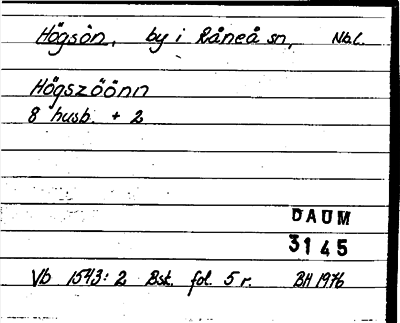 Högsön, by i Råneå sn, Nbl.
Högszöönn
8 husb. + 2
DAUM
3145
Vb 1543:2 Bsk. fol. 5 r. BH 1976